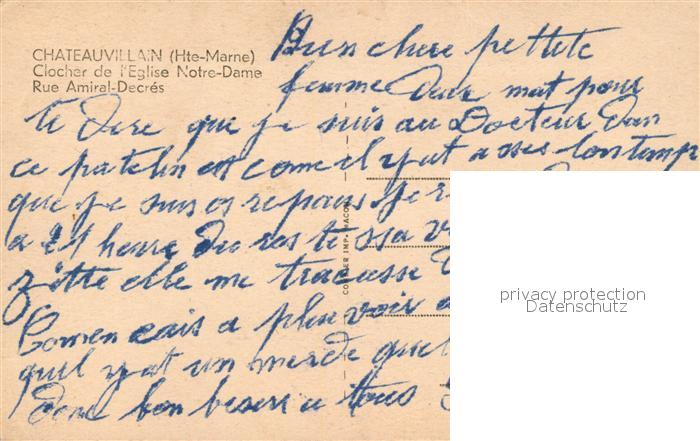 CHATEAUVILLAIN (Hte-Marne)
Clocher de l'Eglise Notre-Dame
Rue Amiral-Decrés
chere pettete
femme deux mat pour
te dire que je suis au Docteur dan
ce patelin et come il y at asses lontemp
que je suis os repous je
a 21 heure du res te sa
elle me tracasse
Comen cais a plus voir
quil y at un merde quel
donc bon beseri a tous
COMBIER IMP. MACON
privacy protection
Datenschutz